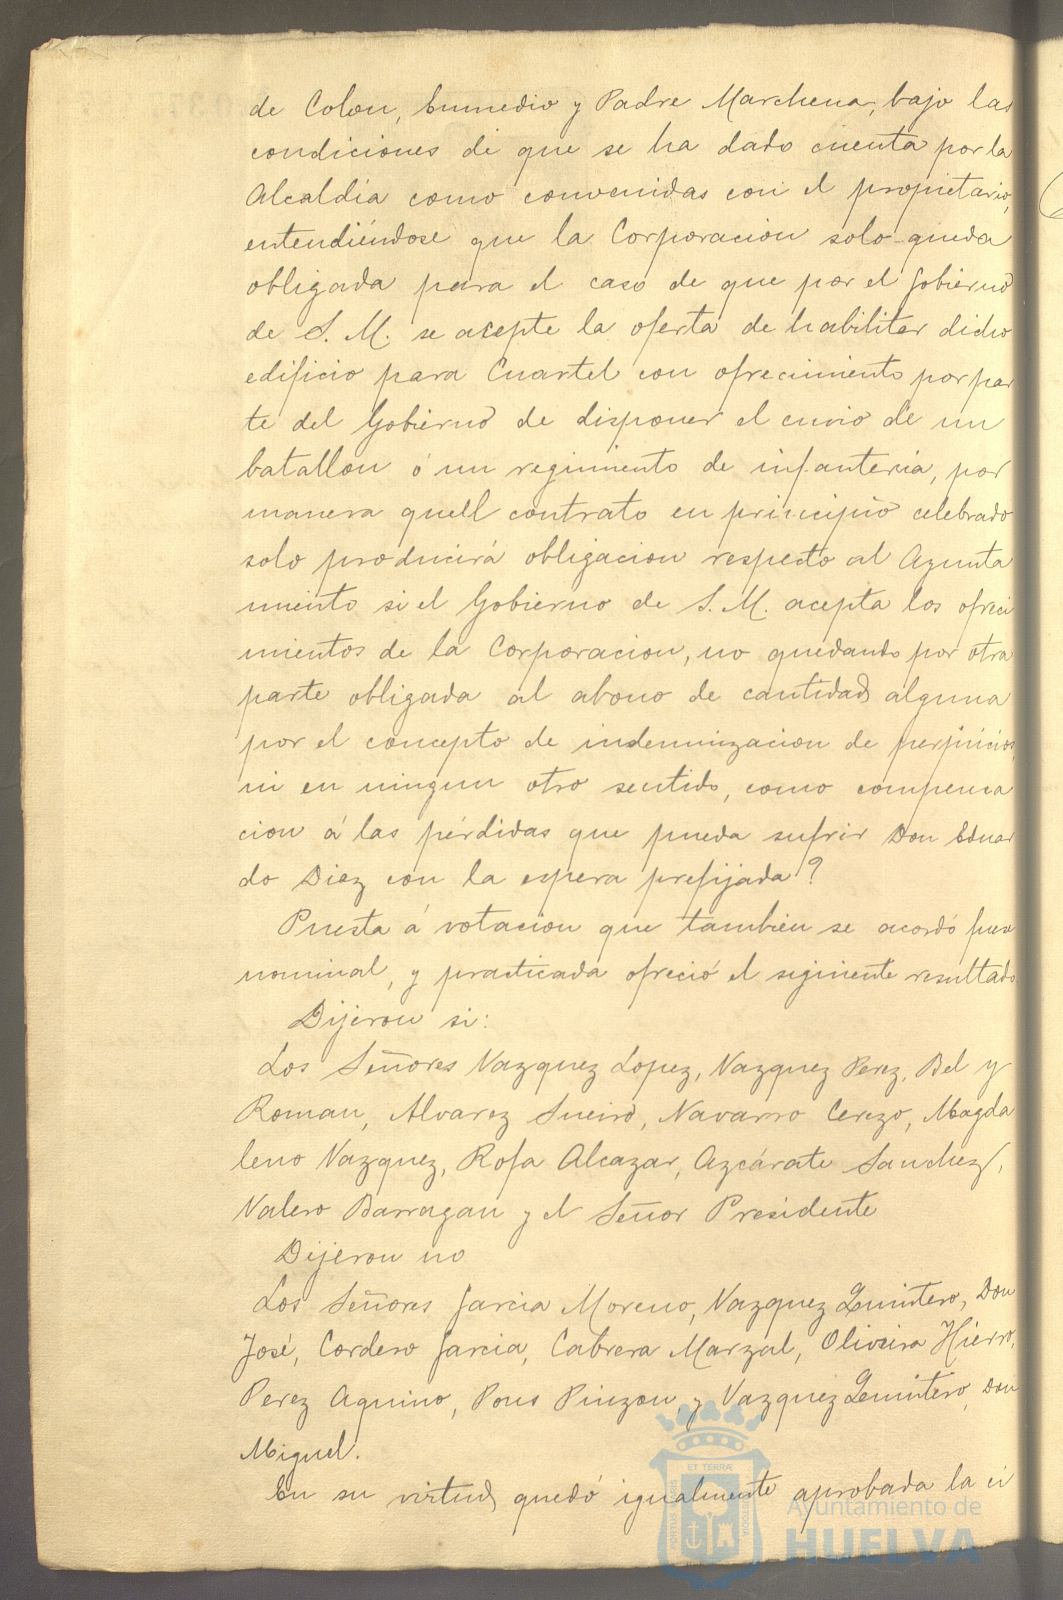 de Colon, Enmedio y Padre Marchena, bajo las
condiciones de que se ha dado cuenta por la
Alcaldia como convenidas con el propietario,
entendiéndose que la Corporacion solo queda
obligada para el caso de que por el Gobierno
de S. M. se acepte la oferta de habilitar dicho
edificio para Cuartel con ofrecimiento por par
te del Gobierno de disponer el envio de un
batallon ó un regimiento de infanteria, por
manera quell contrato en principio celebrado
solo producirá obligacion respecto al Ayunta
miento si el Gobierno de S. M. acepta los ofreci
mientos de la Corporacion, no quedando por otra
parte obligada al abono de cantidad alguna
por el concepto de indemnizacion de perjuicios,
ni en ningun otro sentido, como compensa
cion á las pérdidas que pueda sufrir Don Eduar
do Diaz con la espera prefijada?
Puesta á votacion que tambien se acordó fuese
nominal, y practicada ofreció el siguiente resultado
Dijeron si:
Los Señores Vazquez Lopez, Vazquez Perez, Bel y
Roman, Alvarez Sueiro, Navarro Cerezo, Magda
leno Vazquez, Rofa Alcazar, Azcárate Sanchez,
Valero Barragan y el Señor Presidente
Dijeron no
Los Señores Garcia Moreno, Vazquez Quintero, Don
José, Cordero Garcia, Cabrera Marzal, Oliveira Hierro,
Perez Aquino, Pons Pinzon y Vazquez Quintero, Don
Miguel.
En su virtud, quedó igualmente aprobada la ci
ET TERRÆ
PORTUS MARIS
CUSTODIA
Ayuntamiento de
HUELVA